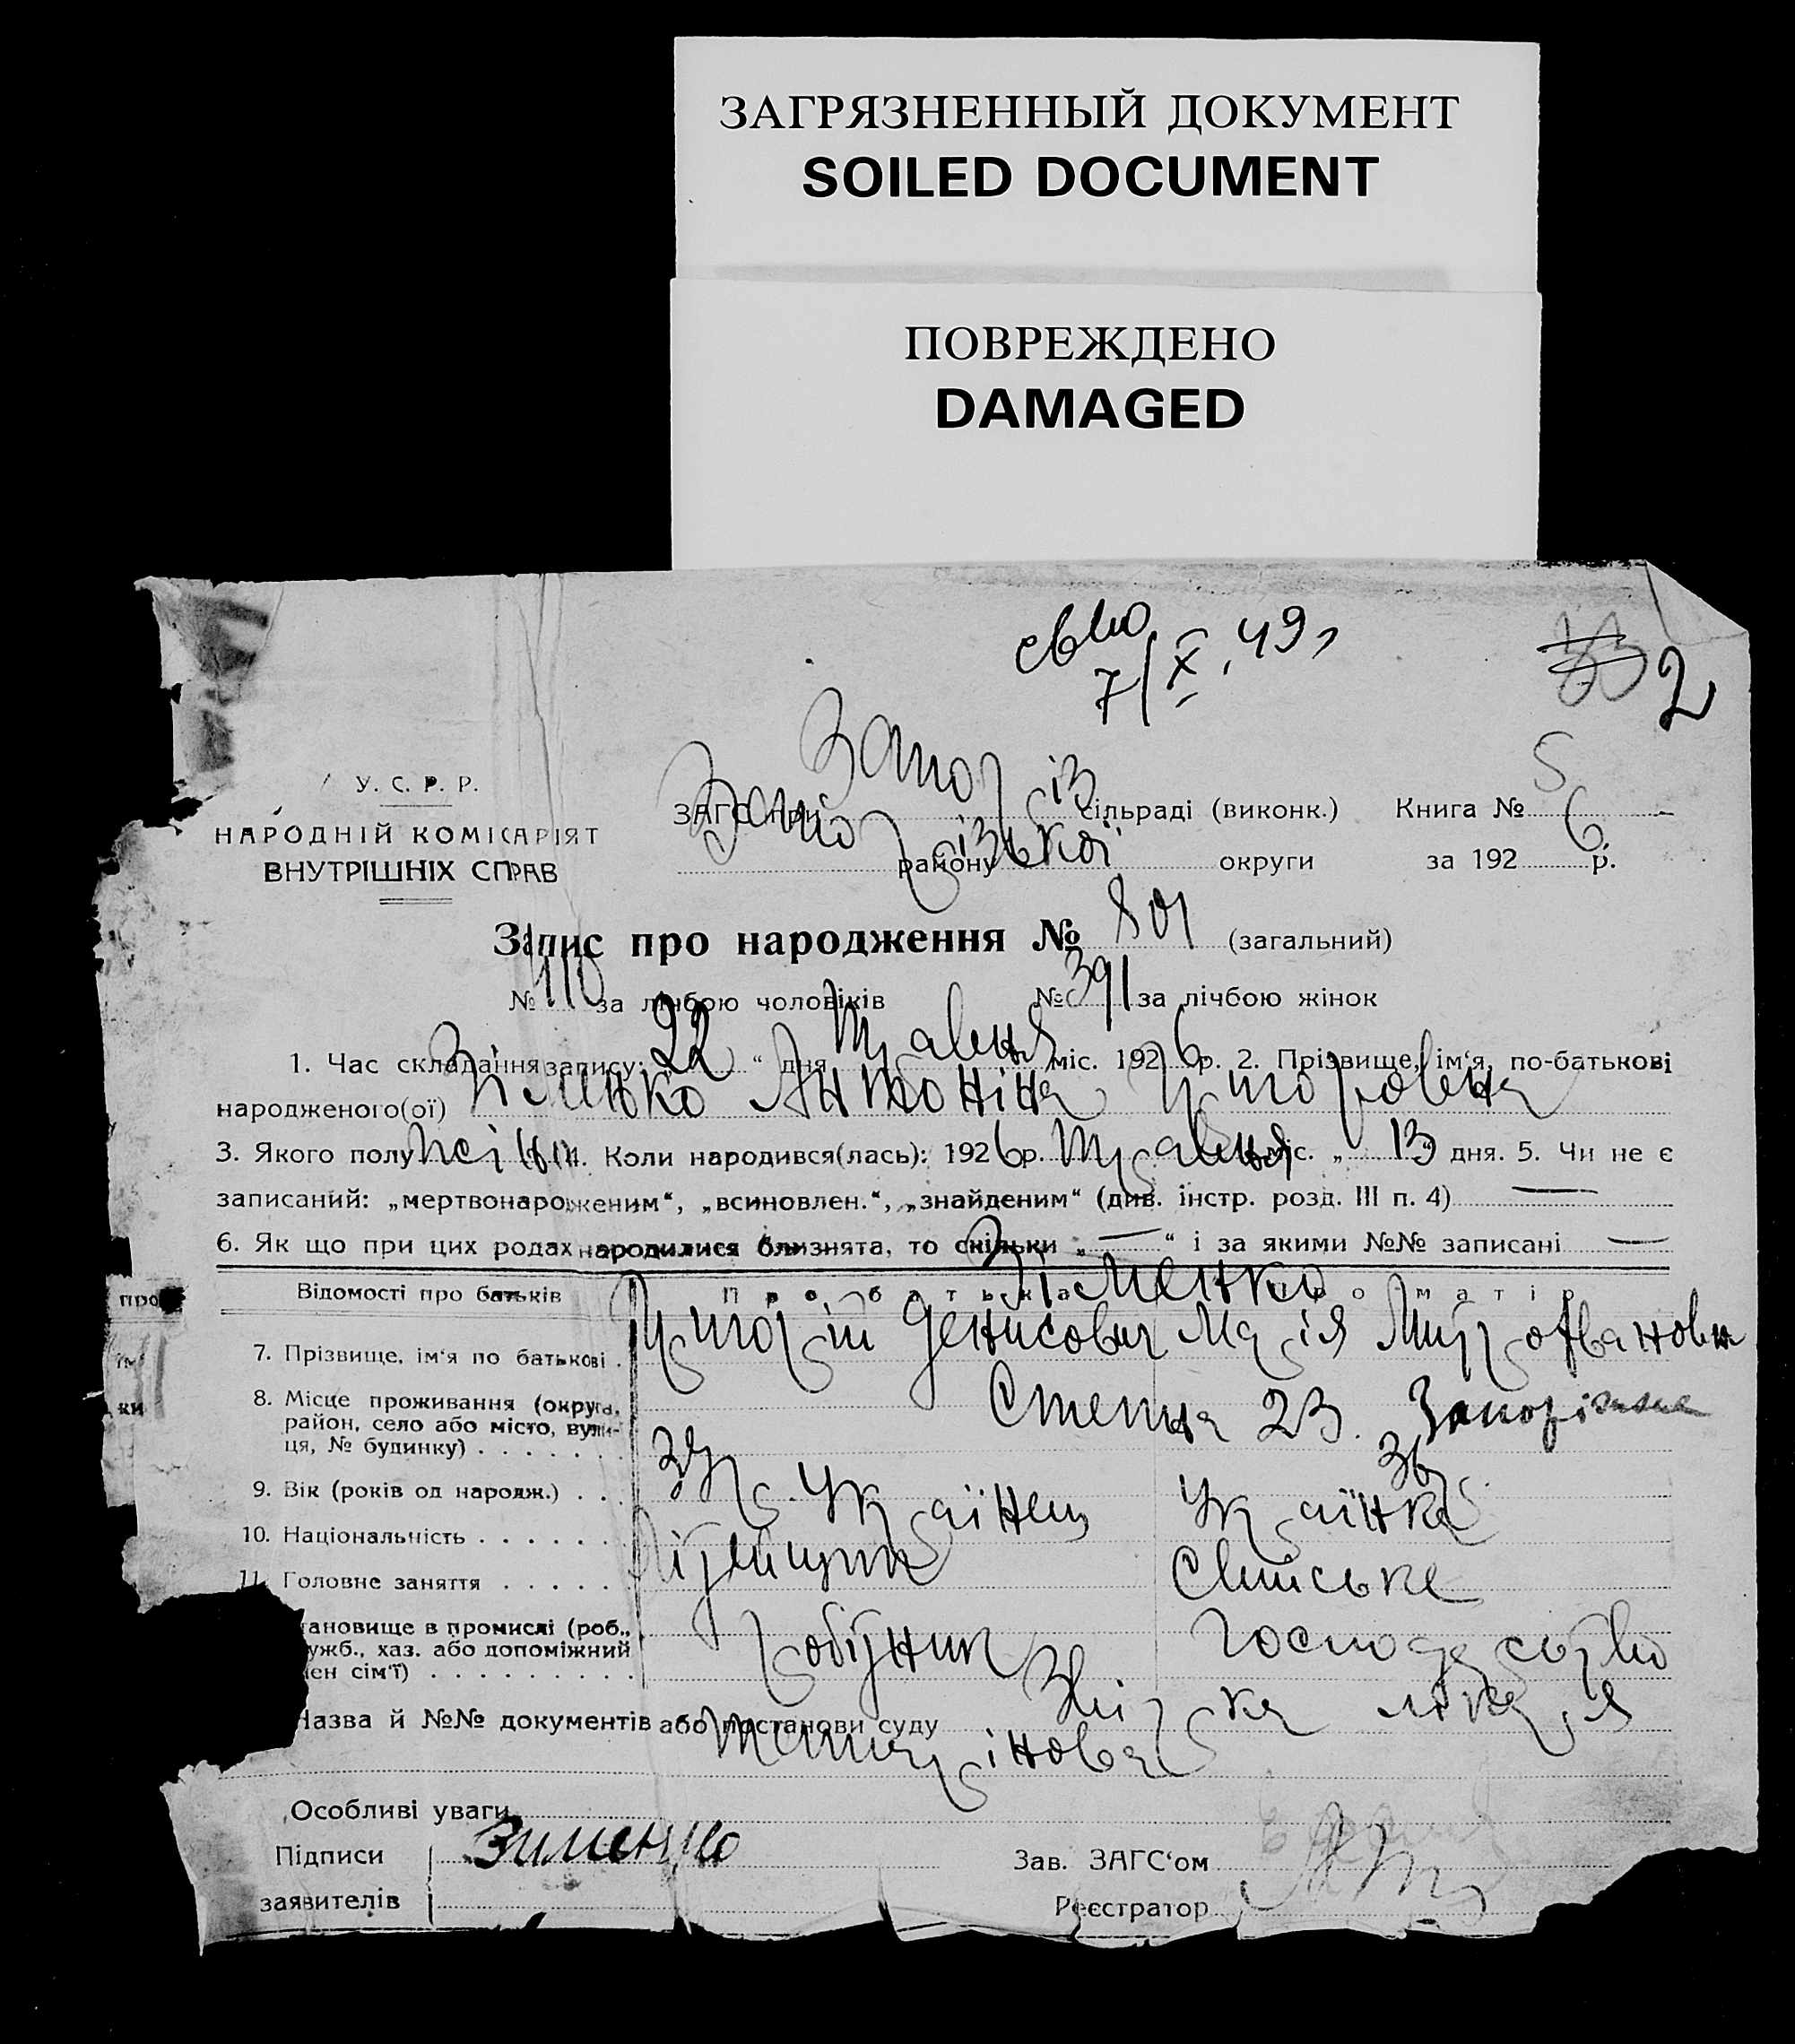 ЗАГРЯЗНЕННЫЙ ДОКУМЕНТ
SOILED DOCUMENT
ПОВРЕЖДЕНО
DAMAGED
7/X.49
2
У. С. Р. Р.
НАРОДНІЙ КОМІСАРІЯТ
ВНУТРІШНІХ СПРАВ
ЗАГС при Запоріз сільраді (виконк.) Книга № 5
Запорізької району округи за 1926 р.
Запис про народження № 801 (загальний)
№ 410 за лічбою чоловіків № 391 за лічбою жінок
1. Час складання запису: „22“ дня Травня міс. 1926 р. 2. Прізвище, ім‘я, по-батькові
народженого(ої) Зіменко Антоніна Григоровна
3. Якого полу жіноч 4. Коли народився(лась): 1926 р. Травня міс. „13 дня. 5. Чи не є
записаний: „мертвонароженим“, „всиновлен.“, „знайденим“ (див. інстр. розд. III п. 4) —
6. Як що при цих родах народилися близнята, то скільки „—“ і за якими №№ записані —
Відомості про батьків Про батька Про матір
Зіменко
7. Прізвище, ім‘я по батькові . Григорій Денисович Марія Мит
8. Місце проживання (округа, район, село або місто, вулиця, № будинку) . . . . . . Степна 23. Запоріжжя
9. Вік (років од народж.) . . . 37р. 36
10. Національність . . . . . . . Українец Українка
11. Головне заняття . . . . .
становище в промислі (роб.,
ужб., хаз. або допоміжний
лен сім‘ї) . . . . . . . . . робітник Господарство
Назва й №№ документів або постанови суду Збірка лікаря
Особливі уваги
Підписи Зименко Зав. ЗАГС‘ом
заявителів Реєстратор
про
ки